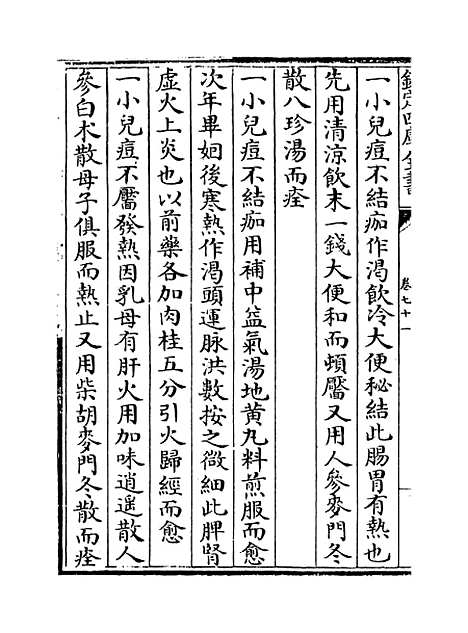 欽定四庫全書
卷七十一
一小兒痘不結痂作渴飲冷大便秘結此腸胃有熱也
先用清涼飲末一錢大便和而頓靨又用人參麥門冬
散八珍湯而痊
一小兒痘不結痂用補中益氣湯地黄丸料煎服而愈
次年畢姻後寒熱作渴頭運脉洪數按之微細此脾腎
虛火上炎也以前藥各加肉桂五分引火歸經而愈
一小兒痘不靨發熱因乳母有肝火用加味逍遥散人
參白术散母子俱服而熱止又用柴胡麥門冬散而痊